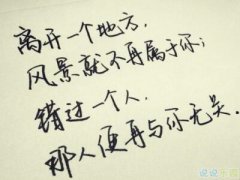 离开一个地方,
风景就不再属于你;
错过一个人,
那人便再与你无关.
说说